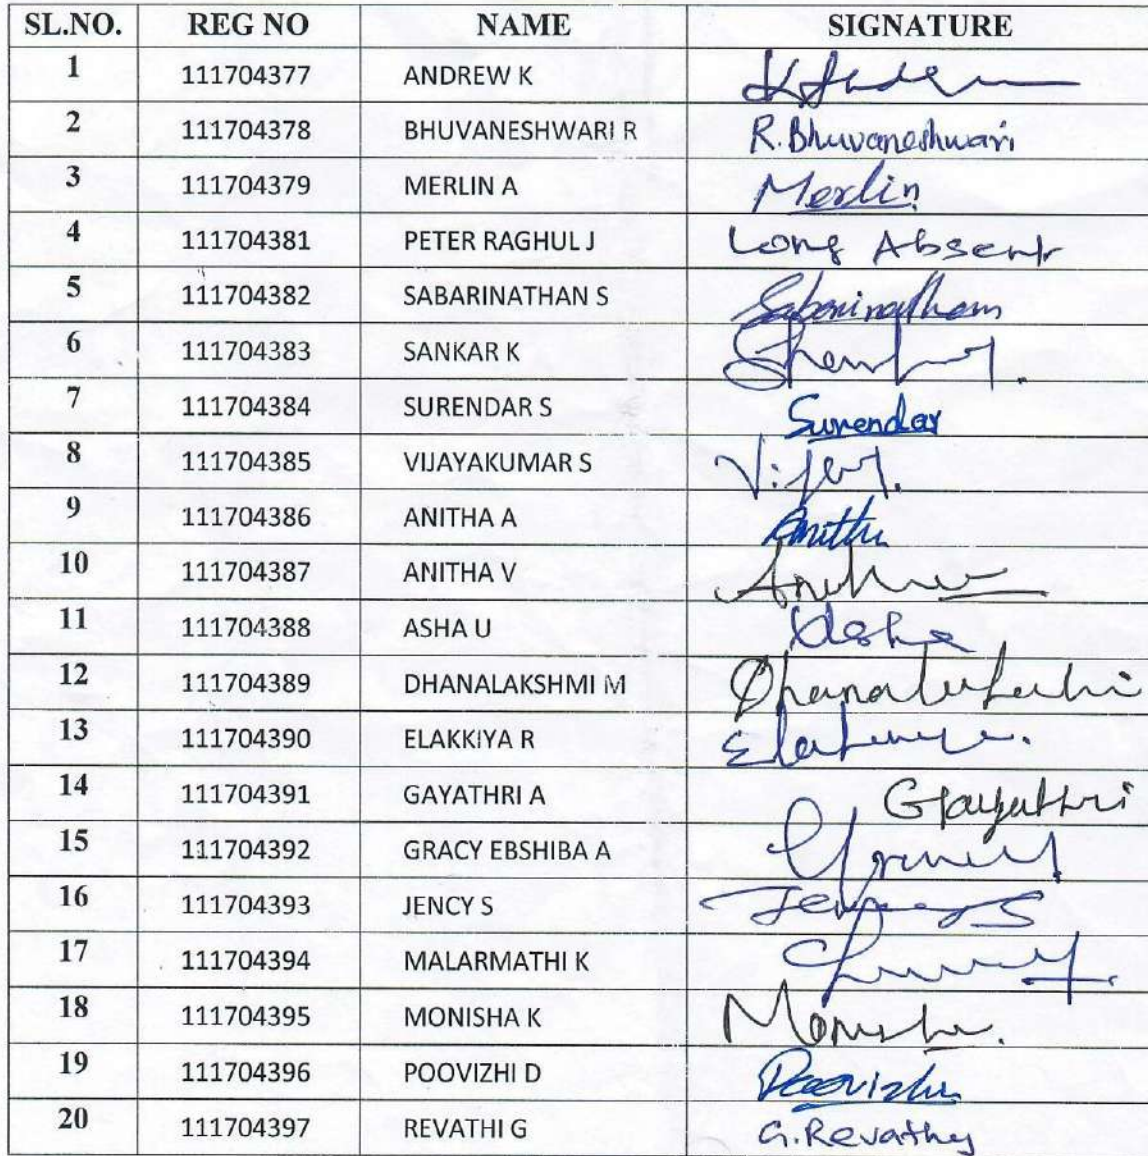 SL.NO. REG NO NAME SIGNATURE
1 111704377 ANDREW K
2 111704378 BHUVANESHWARI R R.Bhuvaneshwari
3 111704379 MERLIN A Merlin
4 111704381 PETER RAGHUL J Long Absent
5 111704382 SABARINATHAN S Sabarinathan
6 111704383 SANKAR K
7 111704384 SURENDAR S Surendar
8 111704385 VIJAYAKUMAR S
9 111704386 ANITHA A
10 111704387 ANITHA V
11 111704388 ASHA U Asha
12 111704389 DHANALAKSHMI M
13 111704390 ELAKKIYA R
14 111704391 GAYATHRI A Gayathri
15 111704392 GRACY EBSHIBA A
16 111704393 JENCY S
17 111704394 MALARMATHI K
18 111704395 MONISHA K
19 111704396 POOVIZHI D Poovizhi
20 111704397 REVATHI G G.Revathy